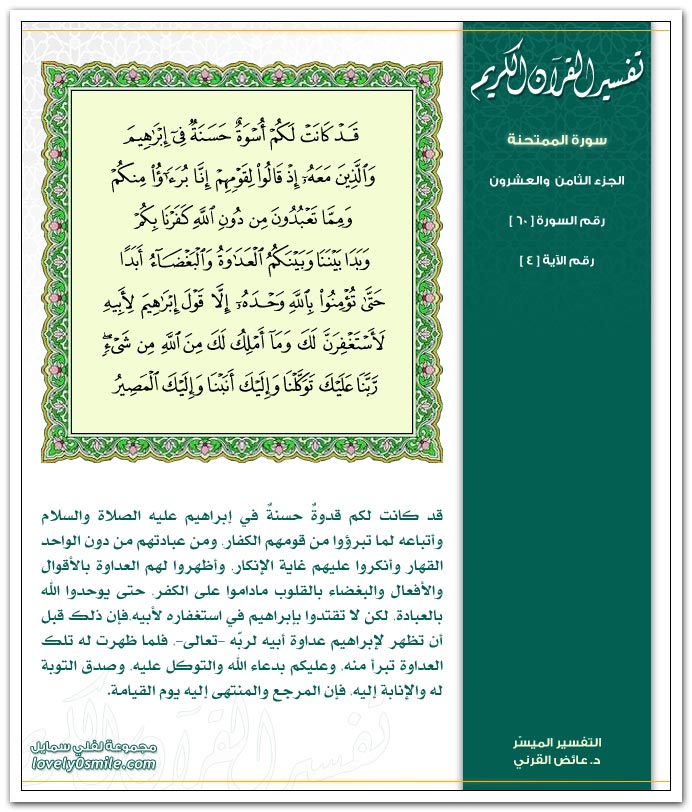 تفسير القرآن الكريم
سورة الممتحنة
الجزء الثامن والعشرون
رقم السورة [ ٦٠ ]
رقم الآية [ ٤ ]
قَدْ كَانَتْ لَكُمْ أُسْوَةٌ حَسَنَةٌ فِىٓ إِبْرَٰهِيمَ
وَٱلَّذِينَ مَعَهُۥٓ إِذْ قَالُوا۟ لِقَوْمِهِمْ إِنَّا بُرَءَٰٓؤُا۟ مِنكُمْ
وَمِمَّا تَعْبُدُونَ مِن دُونِ ٱللَّهِ كَفَرْنَا بِكُمْ
وَبَدَا بَيْنَنَا وَبَيْنَكُمُ ٱلْعَدَٰوَةُ وَٱلْبَغْضَآءُ أَبَدًا
حَتَّىٰ تُؤْمِنُوا۟ بِٱللَّهِ وَحْدَهُۥٓ إِلَّا قَوْلَ إِبْرَٰهِيمَ لِأَبِيهِ
لَأَسْتَغْفِرَنَّ لَكَ وَمَآ أَمْلِكُ لَكَ مِنَ ٱللَّهِ مِن شَىْءٍۖ
رَّبَّنَا عَلَيْكَ تَوَكَّلْنَا وَإِلَيْكَ أَنَبْنَا وَإِلَيْكَ ٱلْمَصِيرُ
قد كانت لكم قدوةٌ حسنةٌ في إبراهيم عليه الصلاة والسلام
وأتباعه لما تبرؤوا من قومهم الكفار، ومن عبادتهم من دون الواحد
القهار وأنكروا عليهم غاية الإنكار، وأظهروا لهم العداوة بالأقوال
والأفعال والبغضاء بالقلوب ماداموا على الكفر، حتى يوحدوا الله
بالعبادة، لكن لا تقتدوا بإبراهيم في استغفاره لأبيه،فإن ذلك قبل
أن تظهر لإبراهيم عداوة أبيه لربّه -تعالى-، فلما ظهرت له تلك
العداوة تبرأ منه، وعليكم بدعاء الله والتوكل عليه، وصدق التوبة
له والإنابة إليه، فإن المرجع والمنتهى إليه يوم القيامة.
التفسير الميسّر
د. عائض القرني
مجموعة لفلي سمايل
lovely0smile.com